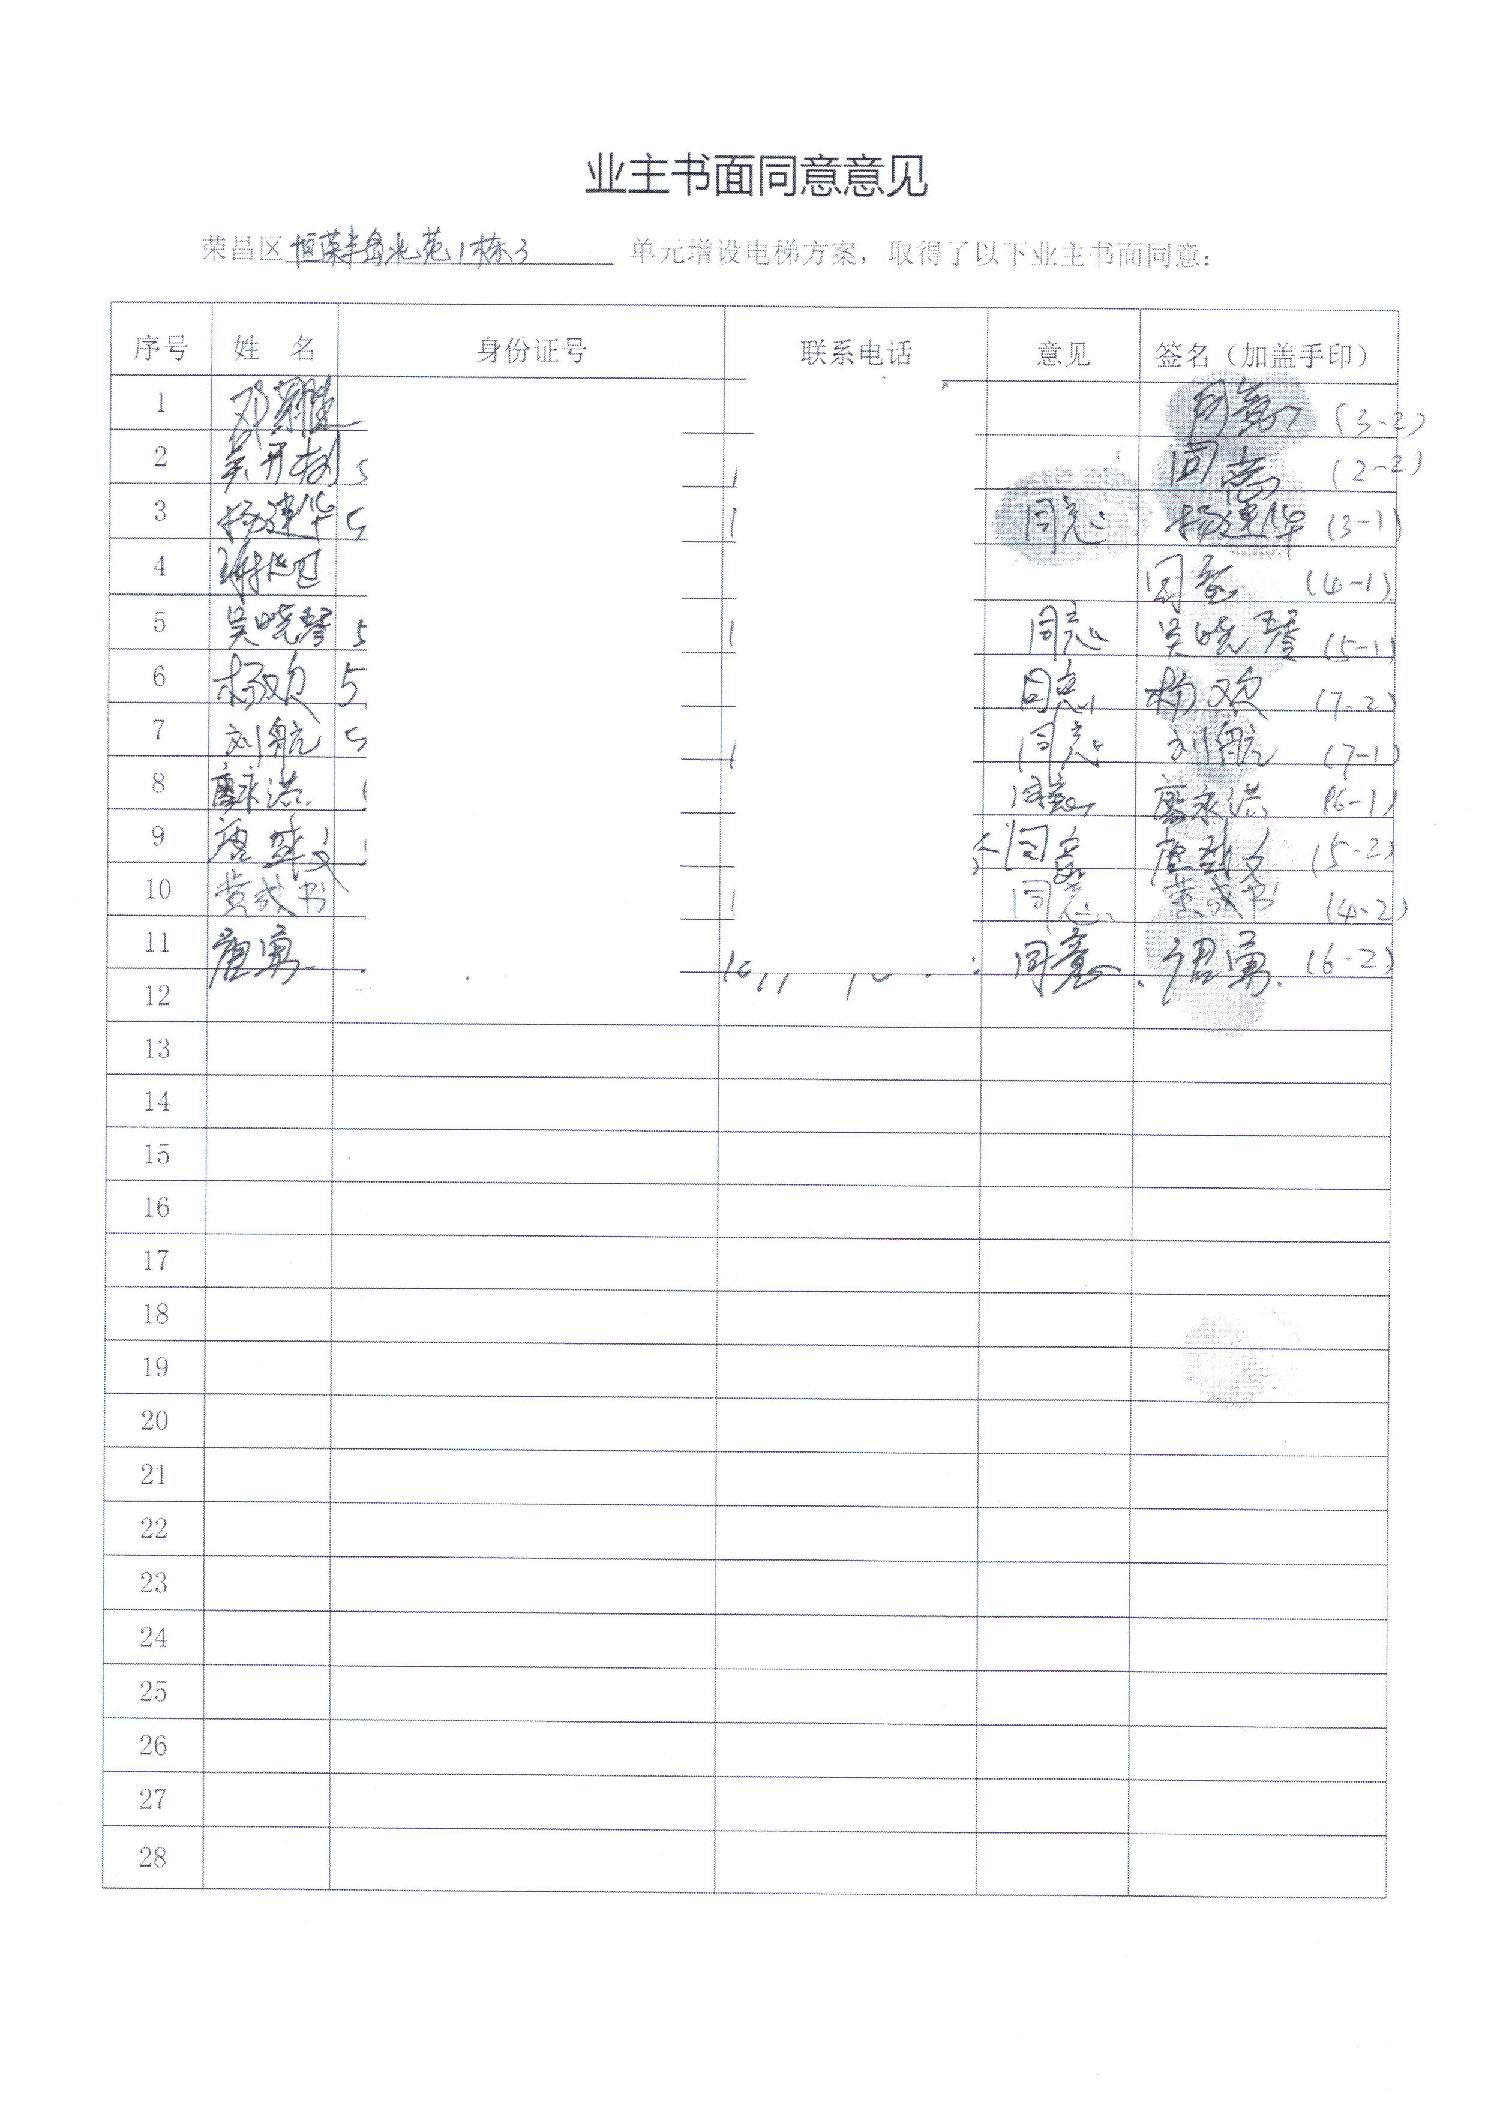 业主书面同意意见
荣昌区 1栋3 单元增设电梯方案，取得了以下业主书面同意：
序号 姓 名 身份证号 联系电话 意见 签名（加盖手印）
1 同意 (3-2)
2 吴开树 5 同意 (2-2)
3 杨建华 5 同意 杨建华 (3-1)
4 同意 (4-1)
5 吴晓琴 5 同意 吴晓琴 (5-1)
6 杨欢 5 同意 杨欢 (7-2)
7 刘航 5 同意 刘航 (7-1)
8 廖永洪 同意 廖永洪 (6-1)
9 同意 (5-2)
10 黄成书 同意 黄成书 (4-2)
11 唐勇 同意 唐勇 (6-2)
12
13
14
15
16
17
18
19
20
21
22
23
24
25
26
27
28